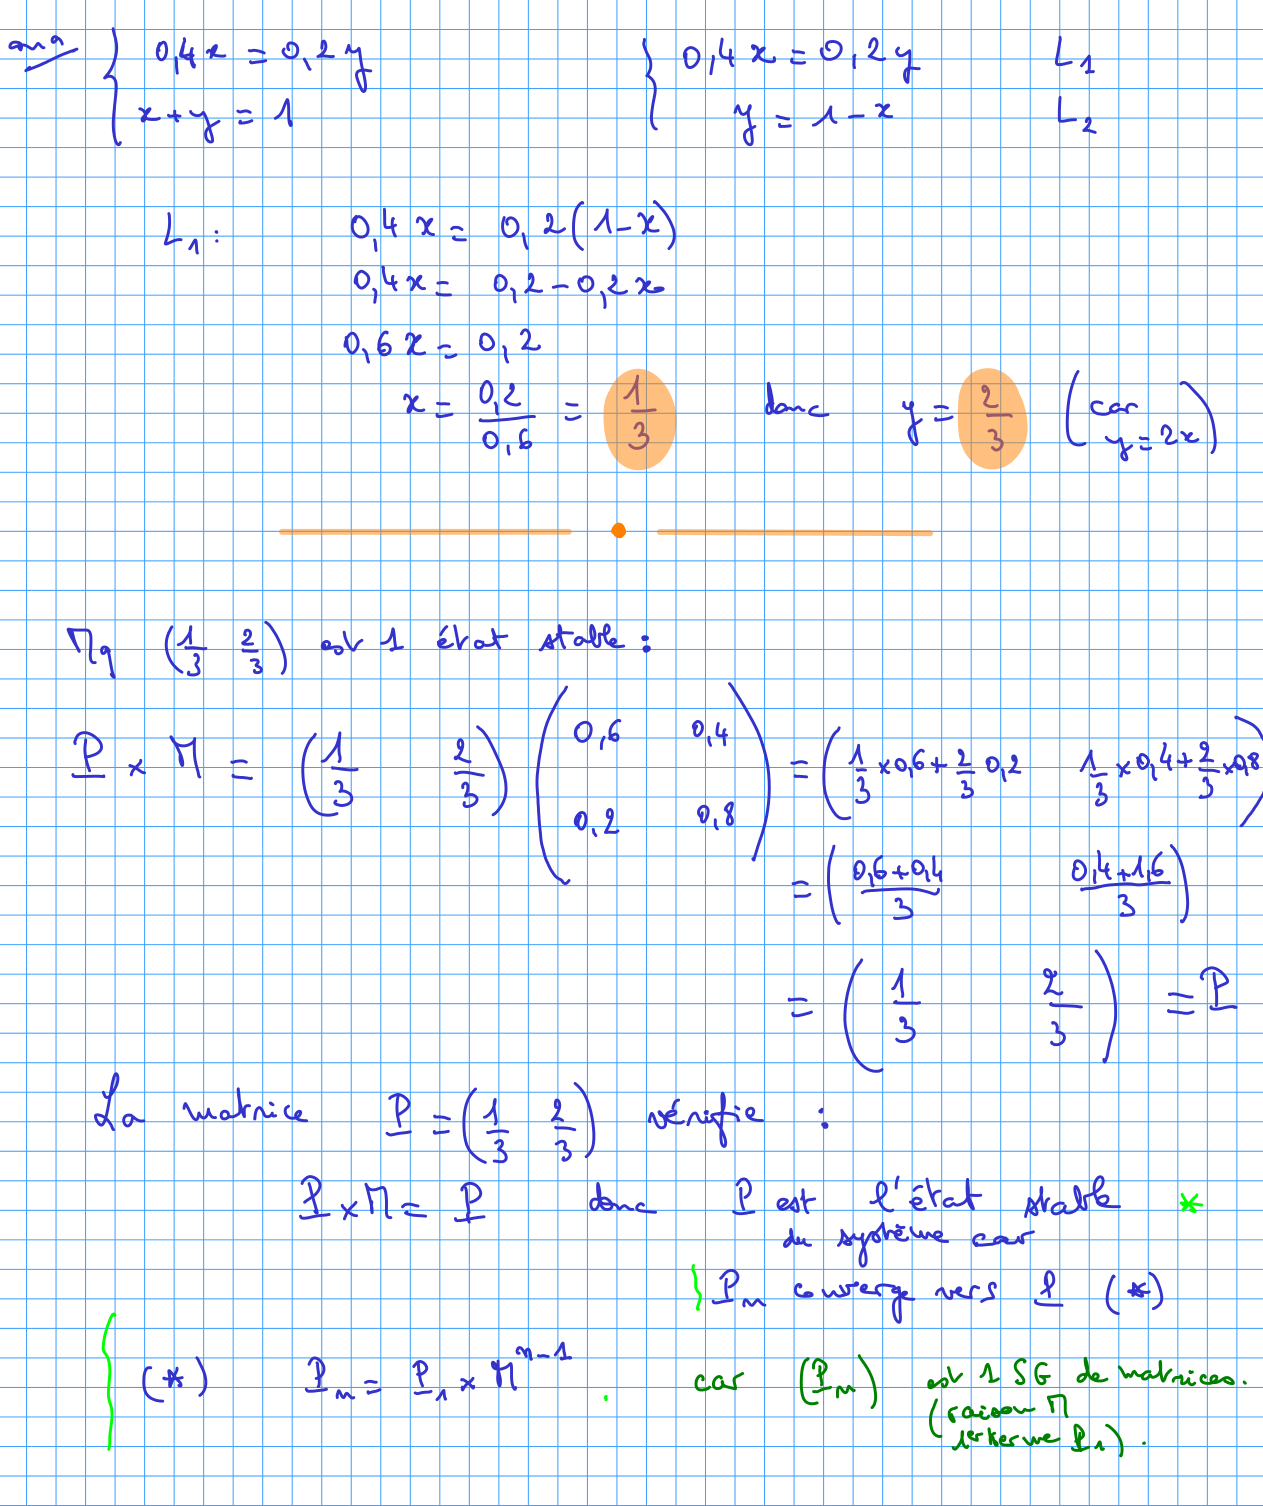 { 0,4x = 0,2y { 0,4x = 0,2y L₁
x+y = 1 y = 1-x L₂
L₁ : 0,4x = 0,2(1-x)
0,4x = 0,2-0,2x
0,6x = 0,2
x = 0,2/0,6 = 1/3 donc y = 2/3 (car y=2x)
Mq (1/3 2/3) est 1 état stable :
P × M = (1/3 2/3) (0,6 0,4 ; 0,2 0,8) = (1/3 ×0,6+ 2/3 0,2 1/3 ×0,4+ 2/3 ×0,8)
= ((0,6+0,4)/3 (0,4+1,6)/3)
= (1/3 2/3) = P
La matrice P = (1/3 2/3) vérifie :
P×M = P donc P est l'état stable *
du système car
P_n converge vers P (*)
(*) P_n = P₁ × M^(n-1) . car (P_n) est 1 SG de matrices.
(raison M
1er terme P₁).